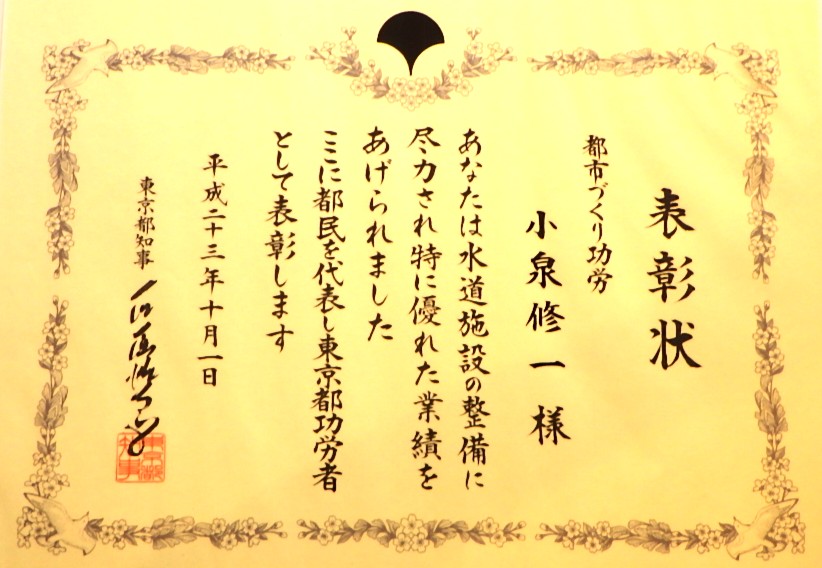 表彰状
都市づくり功労
小泉修一様
あなたは水道施設の整備に
尽力され特に優れた業績を
あげられました
ここに都民を代表し東京都功労者
として表彰します
平成二十三年十月一日
東京都知事